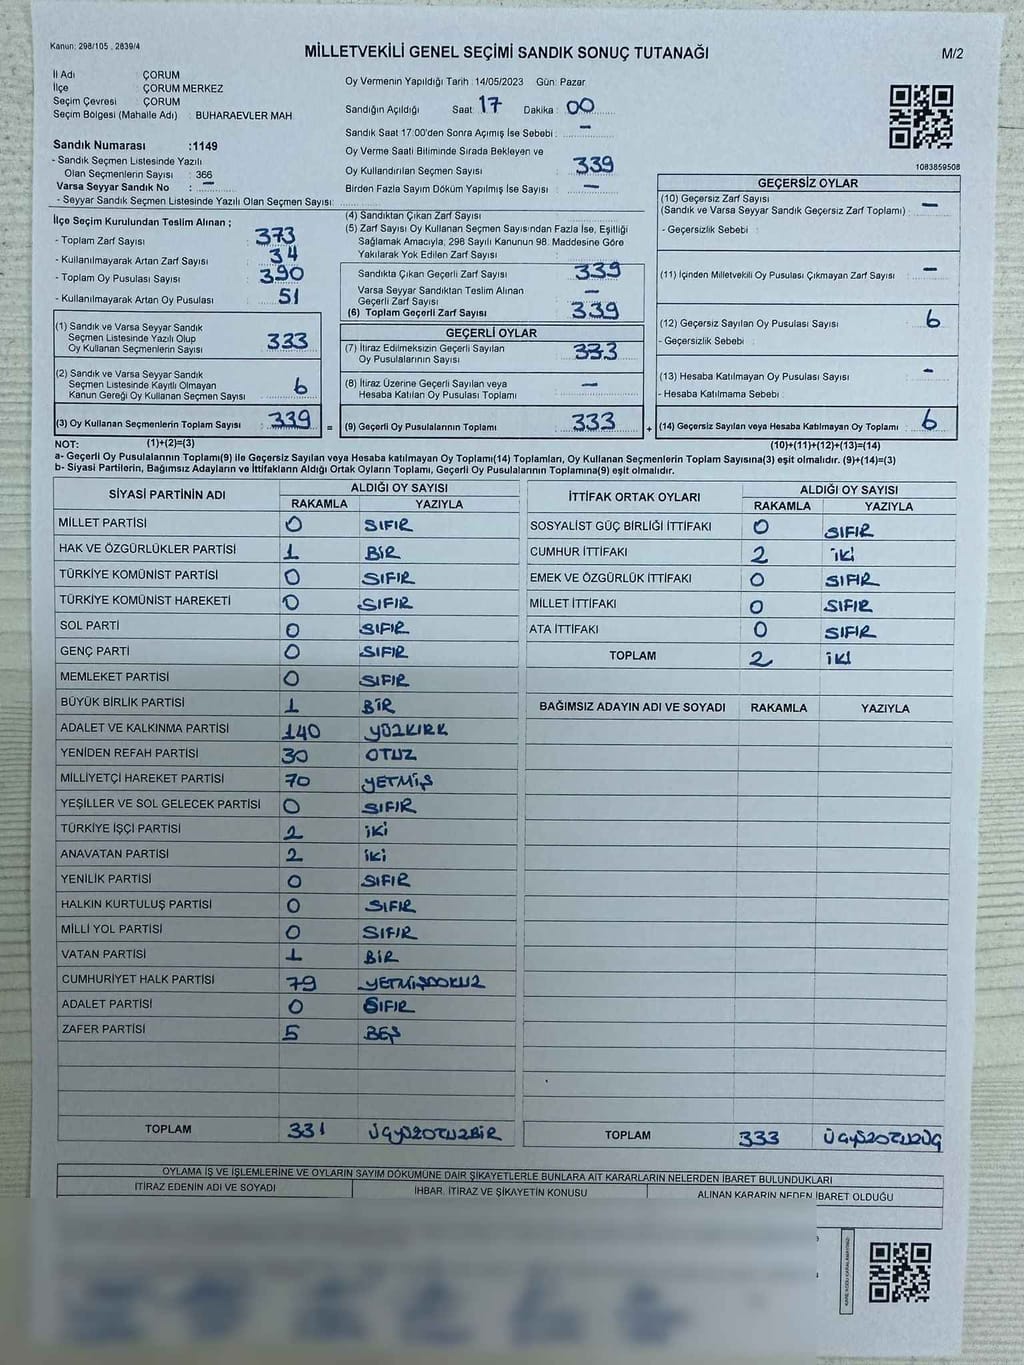 Kanun: 298/105 , 2839/4
MİLLETVEKİLİ GENEL SEÇİMİ SANDIK SONUÇ TUTANAĞI
M/2
İl Adı : ÇORUM
İlçe : ÇORUM MERKEZ
Seçim Çevresi : ÇORUM
Seçim Bölgesi (Mahalle Adı) : BUHARAEVLER MAH
Sandık Numarası :1149
- Sandık Seçmen Listesinde Yazılı
Olan Seçmenlerin Sayısı : 366
Varsa Seyyar Sandık No : —
- Seyyar Sandık Seçmen Listesinde Yazılı Olan Seçmen Sayısı:
Oy Vermenin Yapıldığı Tarih : 14/05/2023 Gün: Pazar
Sandığın Açıldığı Saat : 17 Dakika : 00
Sandık Saat 17:00'den Sonra Açımış İse Sebebi : —
Oy Verme Saati Bitiminde Sırada Bekleyen ve
Oy Kullandırılan Seçmen Sayısı : 339
Birden Fazla Sayım Döküm Yapılmış İse Sayısı : —
1083859508
İlçe Seçim Kurulundan Teslim Alınan ;
- Toplam Zarf Sayısı : 373
- Kullanılmayarak Artan Zarf Sayısı : 34
- Toplam Oy Pusulası Sayısı : 390
- Kullanılmayarak Artan Oy Pusulası : 51
(1) Sandık ve Varsa Seyyar Sandık
Seçmen Listesinde Yazılı Olup
Oy Kullanan Seçmenlerin Sayısı : 333
(2) Sandık ve Varsa Seyyar Sandık
Seçmen Listesinde Kayıtlı Olmayan
Kanun Gereği Oy Kullanan Seçmen Sayısı : 6
(3) Oy Kullanan Seçmenlerin Toplam Sayısı : 339 =
(4) Sandıktan Çıkan Zarf Sayısı
(5) Zarf Sayısı Oy Kullanan Seçmen Sayısından Fazla İse, Eşitliği
Sağlamak Amacıyla, 298 Sayılı Kanunun 98. Maddesine Göre
Yakılarak Yok Edilen Zarf Sayısı :
Sandıkta Çıkan Geçerli Zarf Sayısı : 339
Varsa Seyyar Sandıktan Teslim Alınan
Geçerli Zarf Sayısı : —
(6) Toplam Geçerli Zarf Sayısı : 339
GEÇERLİ OYLAR
(7) İtiraz Edilmeksizin Geçerli Sayılan
Oy Pusulalarının Sayısı : 333
(8) İtiraz Üzerine Geçerli Sayılan veya
Hesaba Katılan Oy Pusulası Toplamı : —
(9) Geçerli Oy Pusulalarının Toplamı : 333 +
GEÇERSİZ OYLAR
(10) Geçersiz Zarf Sayısı
(Sandık ve Varsa Seyyar Sandık Geçersiz Zarf Toplamı) : —
- Geçersizlik Sebebi :
(11) İçinden Milletvekili Oy Pusulası Çıkmayan Zarf Sayısı : —
(12) Geçersiz Sayılan Oy Pusulası Sayısı : 6
- Geçersizlik Sebebi :
(13) Hesaba Katılmayan Oy Pusulası Sayısı : -
- Hesaba Katılmama Sebebi :
(14) Geçersiz Sayılan veya Hesaba Katılmayan Oy Toplamı : 6
NOT: (1)+(2)=(3) (10)+(11)+(12)+(13)=(14)
a- Geçerli Oy Pusulalarının Toplamı(9) ile Geçersiz veya Hesaba katılmayan Oy Toplamı(14) Toplamları, Oy Kullanan Seçmenlerin Toplam Sayısına(3) eşit olmalıdır. (9)+(14)=(3)
b- Siyasi Partilerin, Bağımsız Adayların ve İttifakların Aldığı Ortak Oyların Toplamı, Geçerli Oy Pusulalarının Toplamına(9) eşit olmalıdır.
SİYASİ PARTİNİN ADI ALDIĞI OY SAYISI
RAKAMLA YAZIYLA
MİLLET PARTİSİ 0 SIFIR
HAK VE ÖZGÜRLÜKLER PARTİSİ 1 BİR
TÜRKİYE KOMÜNİST PARTİSİ 0 SIFIR
TÜRKİYE KOMÜNİST HAREKETİ 0 SIFIR
SOL PARTİ 0 SIFIR
GENÇ PARTİ 0 SIFIR
MEMLEKET PARTİSİ 0 SIFIR
BÜYÜK BİRLİK PARTİSİ 1 BİR
ADALET VE KALKINMA PARTİSİ 140 YÜZKIRK
YENİDEN REFAH PARTİSİ 30 OTUZ
MİLLİYETÇİ HAREKET PARTİSİ 70 YETMİŞ
YEŞİLLER VE SOL GELECEK PARTİSİ 0 SIFIR
TÜRKİYE İŞÇİ PARTİSİ 2 İKİ
ANAVATAN PARTİSİ 2 İKİ
YENİLİK PARTİSİ 0 SIFIR
HALKIN KURTULUŞ PARTİSİ 0 SIFIR
MİLLİ YOL PARTİSİ 0 SIFIR
VATAN PARTİSİ 1 BİR
CUMHURİYET HALK PARTİSİ 79 YETMİŞDOKUZ
ADALET PARTİSİ 0 SIFIR
ZAFER PARTİSİ 5 BEŞ
TOPLAM 331 ÜÇYÜZOTUZBİR
İTTİFAK ORTAK OYLARI ALDIĞI OY SAYISI
RAKAMLA YAZIYLA
SOSYALİST GÜÇ BİRLİĞİ İTTİFAKI 0 SIFIR
CUMHUR İTTİFAKI 2 İKİ
EMEK VE ÖZGÜRLÜK İTTİFAKI 0 SIFIR
MİLLET İTTİFAKI 0 SIFIR
ATA İTTİFAKI 0 SIFIR
TOPLAM 2 İKİ
BAĞIMSIZ ADAYIN ADI VE SOYADI RAKAMLA YAZIYLA
TOPLAM 333 ÜÇYÜZOTUZÜÇ
OYLAMA İŞ VE İŞLEMLERİNE VE OYLARIN SAYIM DÖKÜMÜNE DAİR ŞİKAYETLERLE BUNLARA AİT KARARLARIN NELERDEN İBARET BULUNDUKLARI
İTİRAZ EDENİN ADI VE SOYADI İHBAR, İTİRAZ VE ŞİKAYETİN KONUSU ALINAN KARARIN NEDEN İBARET OLDUĞU